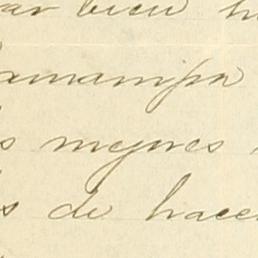 ar bien h
amanifa
s mejores
s de hacer